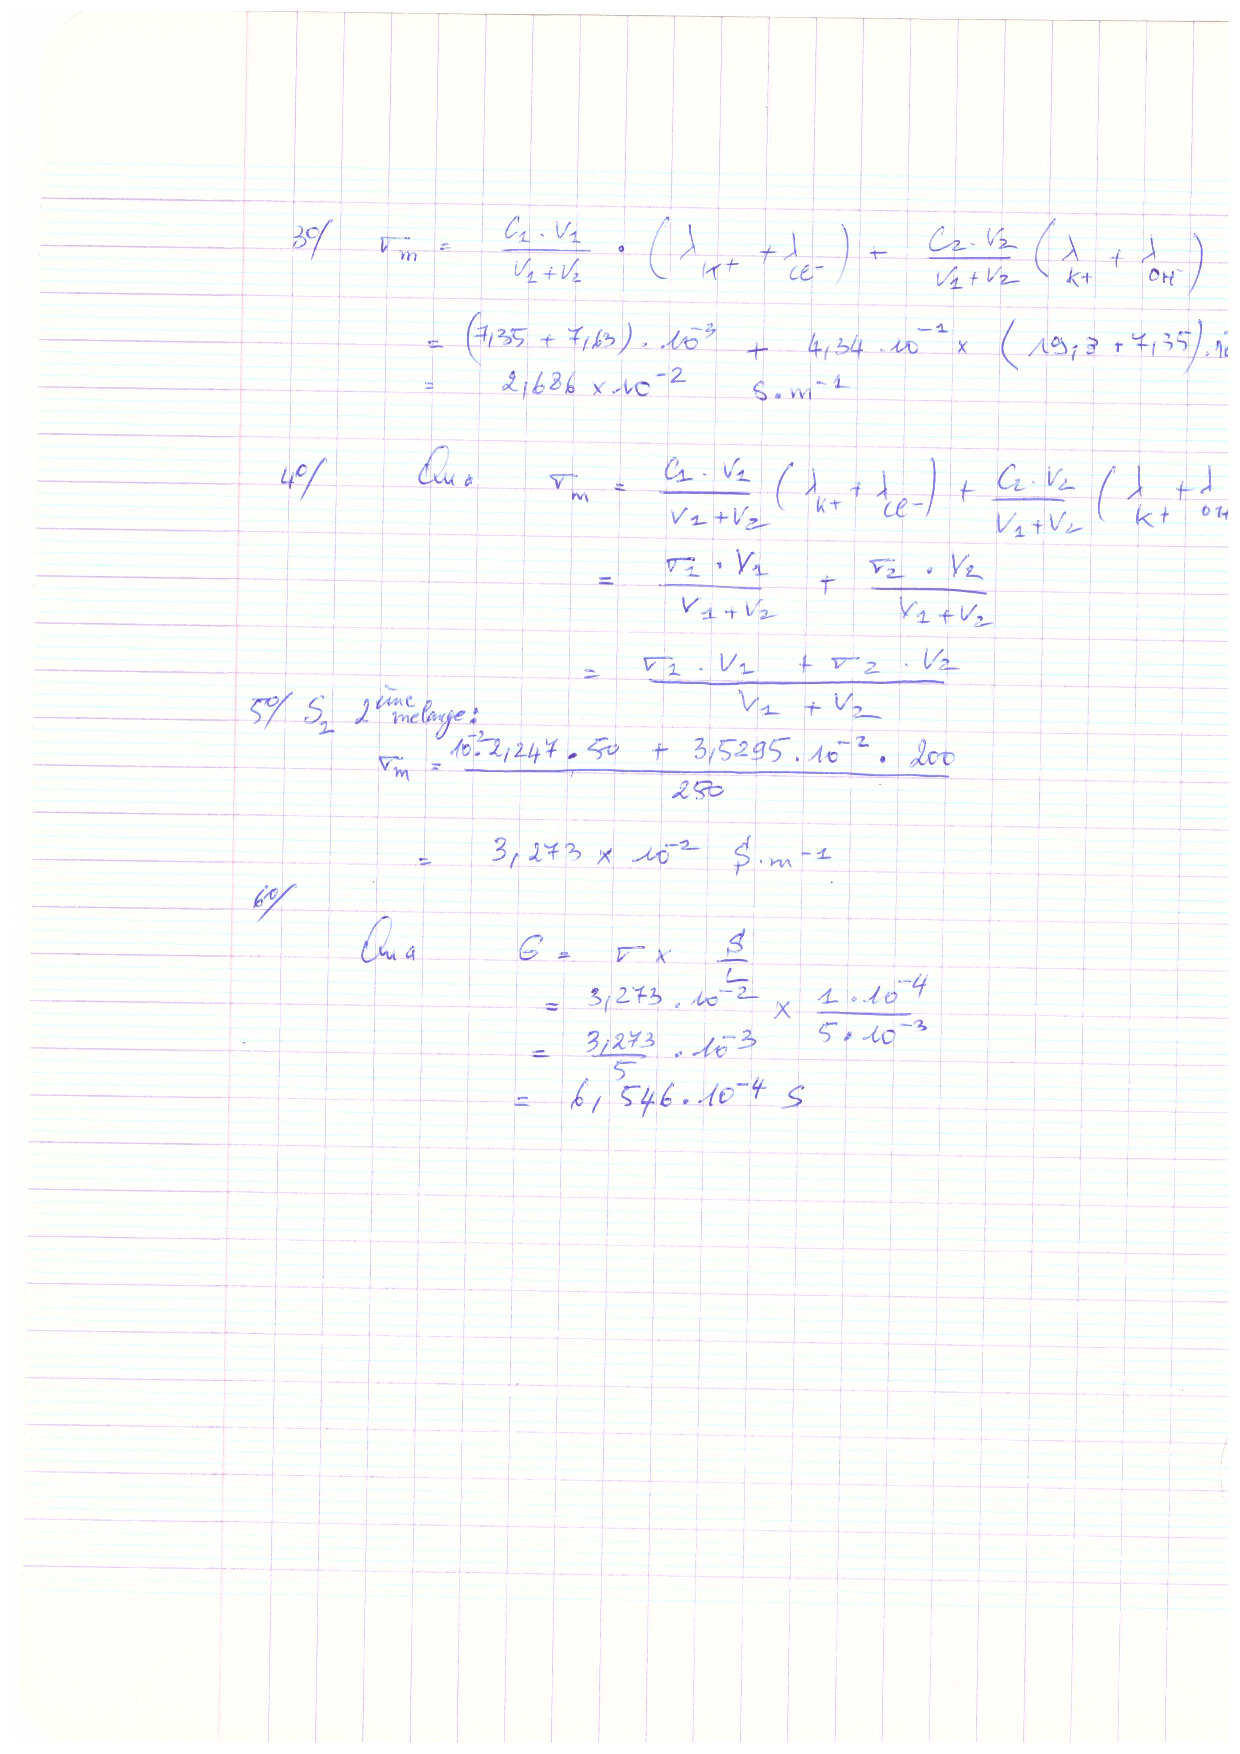 3°/ σm = C1 . V1 / V1 + V2 . (λ K+ + λ Cl-) + C2 . V2 / V1 + V2 (λ K+ + λ OH-)
= (7,35 + 7,63) . 10^-3 + 4,34 . 10^-1 × (19,2 + 7,35) . 10
= 2,686 × 10^-2 S.m^-1
4°/ On a σm = C1 . V1 / V1 + V2 (λ K+ + λ Cl-) + C2 . V2 / V1 + V2 (λ K+ + λ OH
= σ1 . V1 / V1 + V2 + σ2 . V2 / V1 + V2
= σ1 . V1 + σ2 . V2 / V1 + V2
5°/ S2 2ième mélange :
σm = 10^-2. 2,247 . 50 + 3,5295 . 10^-2 . 200 / 250
= 3,273 × 10^-2 S.m^-1
6°/
On a G = σ × S / L
= 3,273 . 10^-2 × 1 . 10^-4 / 5 . 10^-3
= 3,273 / 5 . 10^-3
= 6,546 . 10^-4 S